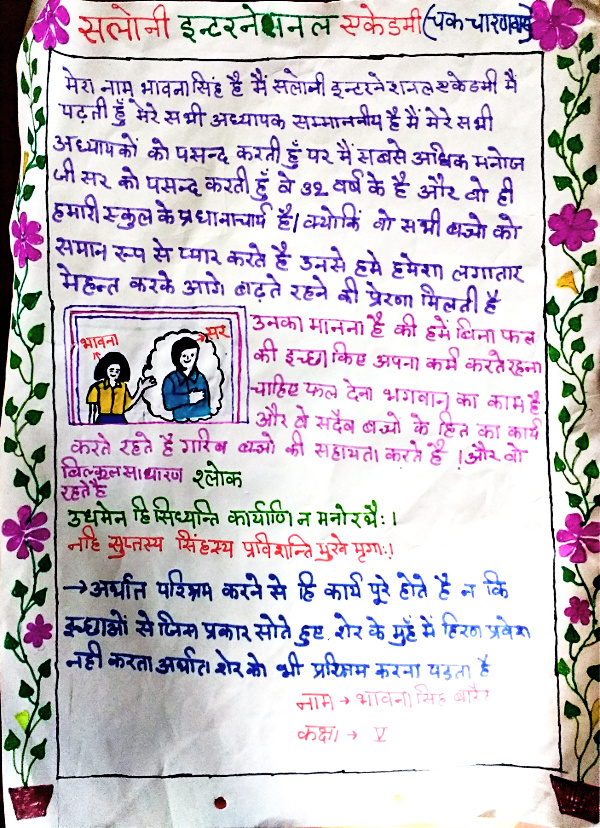 सलोनी इन्टरनेशनल एकेडमी (चक चारणवास)
मेरा नाम भावना सिंह है मैं सलोनी इन्टरनेशनल एकेडमी मैं
पढ़ती हुँ मेरे सभी अध्यापक सम्माननीय है मैं मेरे सभी
अध्यापकों को पसन्द करती हुँ पर मैं सबसे अधिक मनोज
जी सर को पसन्द करती हुँ वे 32 वर्ष के है और वो ही
हमारी स्कुल के प्रधानाचार्य है। क्योकिं वो सभी बच्चो को
समान रूप से प्यार करते है उनसे हमे हमेशा लगातार
मेहन्त करके आगे बढ़ते रहने की प्रेरणा मिलती है
भावना
सर
उनका मानना है की हमे बिना फल
की इच्छा किए अपना कर्म करते रहना
चाहिए फल देना भगवान का काम है
और वे सदैव बच्चो के हित का कार्य
करते रहते है गरिब बच्चो की सहायता करते है । और वो
बिल्कुल साधारण श्लोक
रहते है
उधमेन हि सिध्यन्ति कार्याणि न मनोरथैः।
नहि सुप्तस्य सिंहस्य प्रविशन्ति मुखे मृगाः।
→ अर्थात परिश्रम करने से हि कार्य पूरे होते है न कि
इच्छाओं से जिस प्रकार सोते हुए शेर के मुहँ में हिरण प्रवेश
नही करता अर्थात शेर को भी परिश्रम करना पड़ता है
नाम → भावना सिंह
कक्षा → V